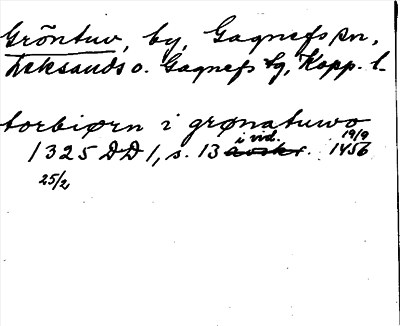 Gröntuv, by, Gagnefs sn,
Leksands o. Gagnefs tg, Kopp. l.
torbiørn i grønatuwo
1325 DD 1, s. 13 i vid. avskr. 19/9 1456
25/2